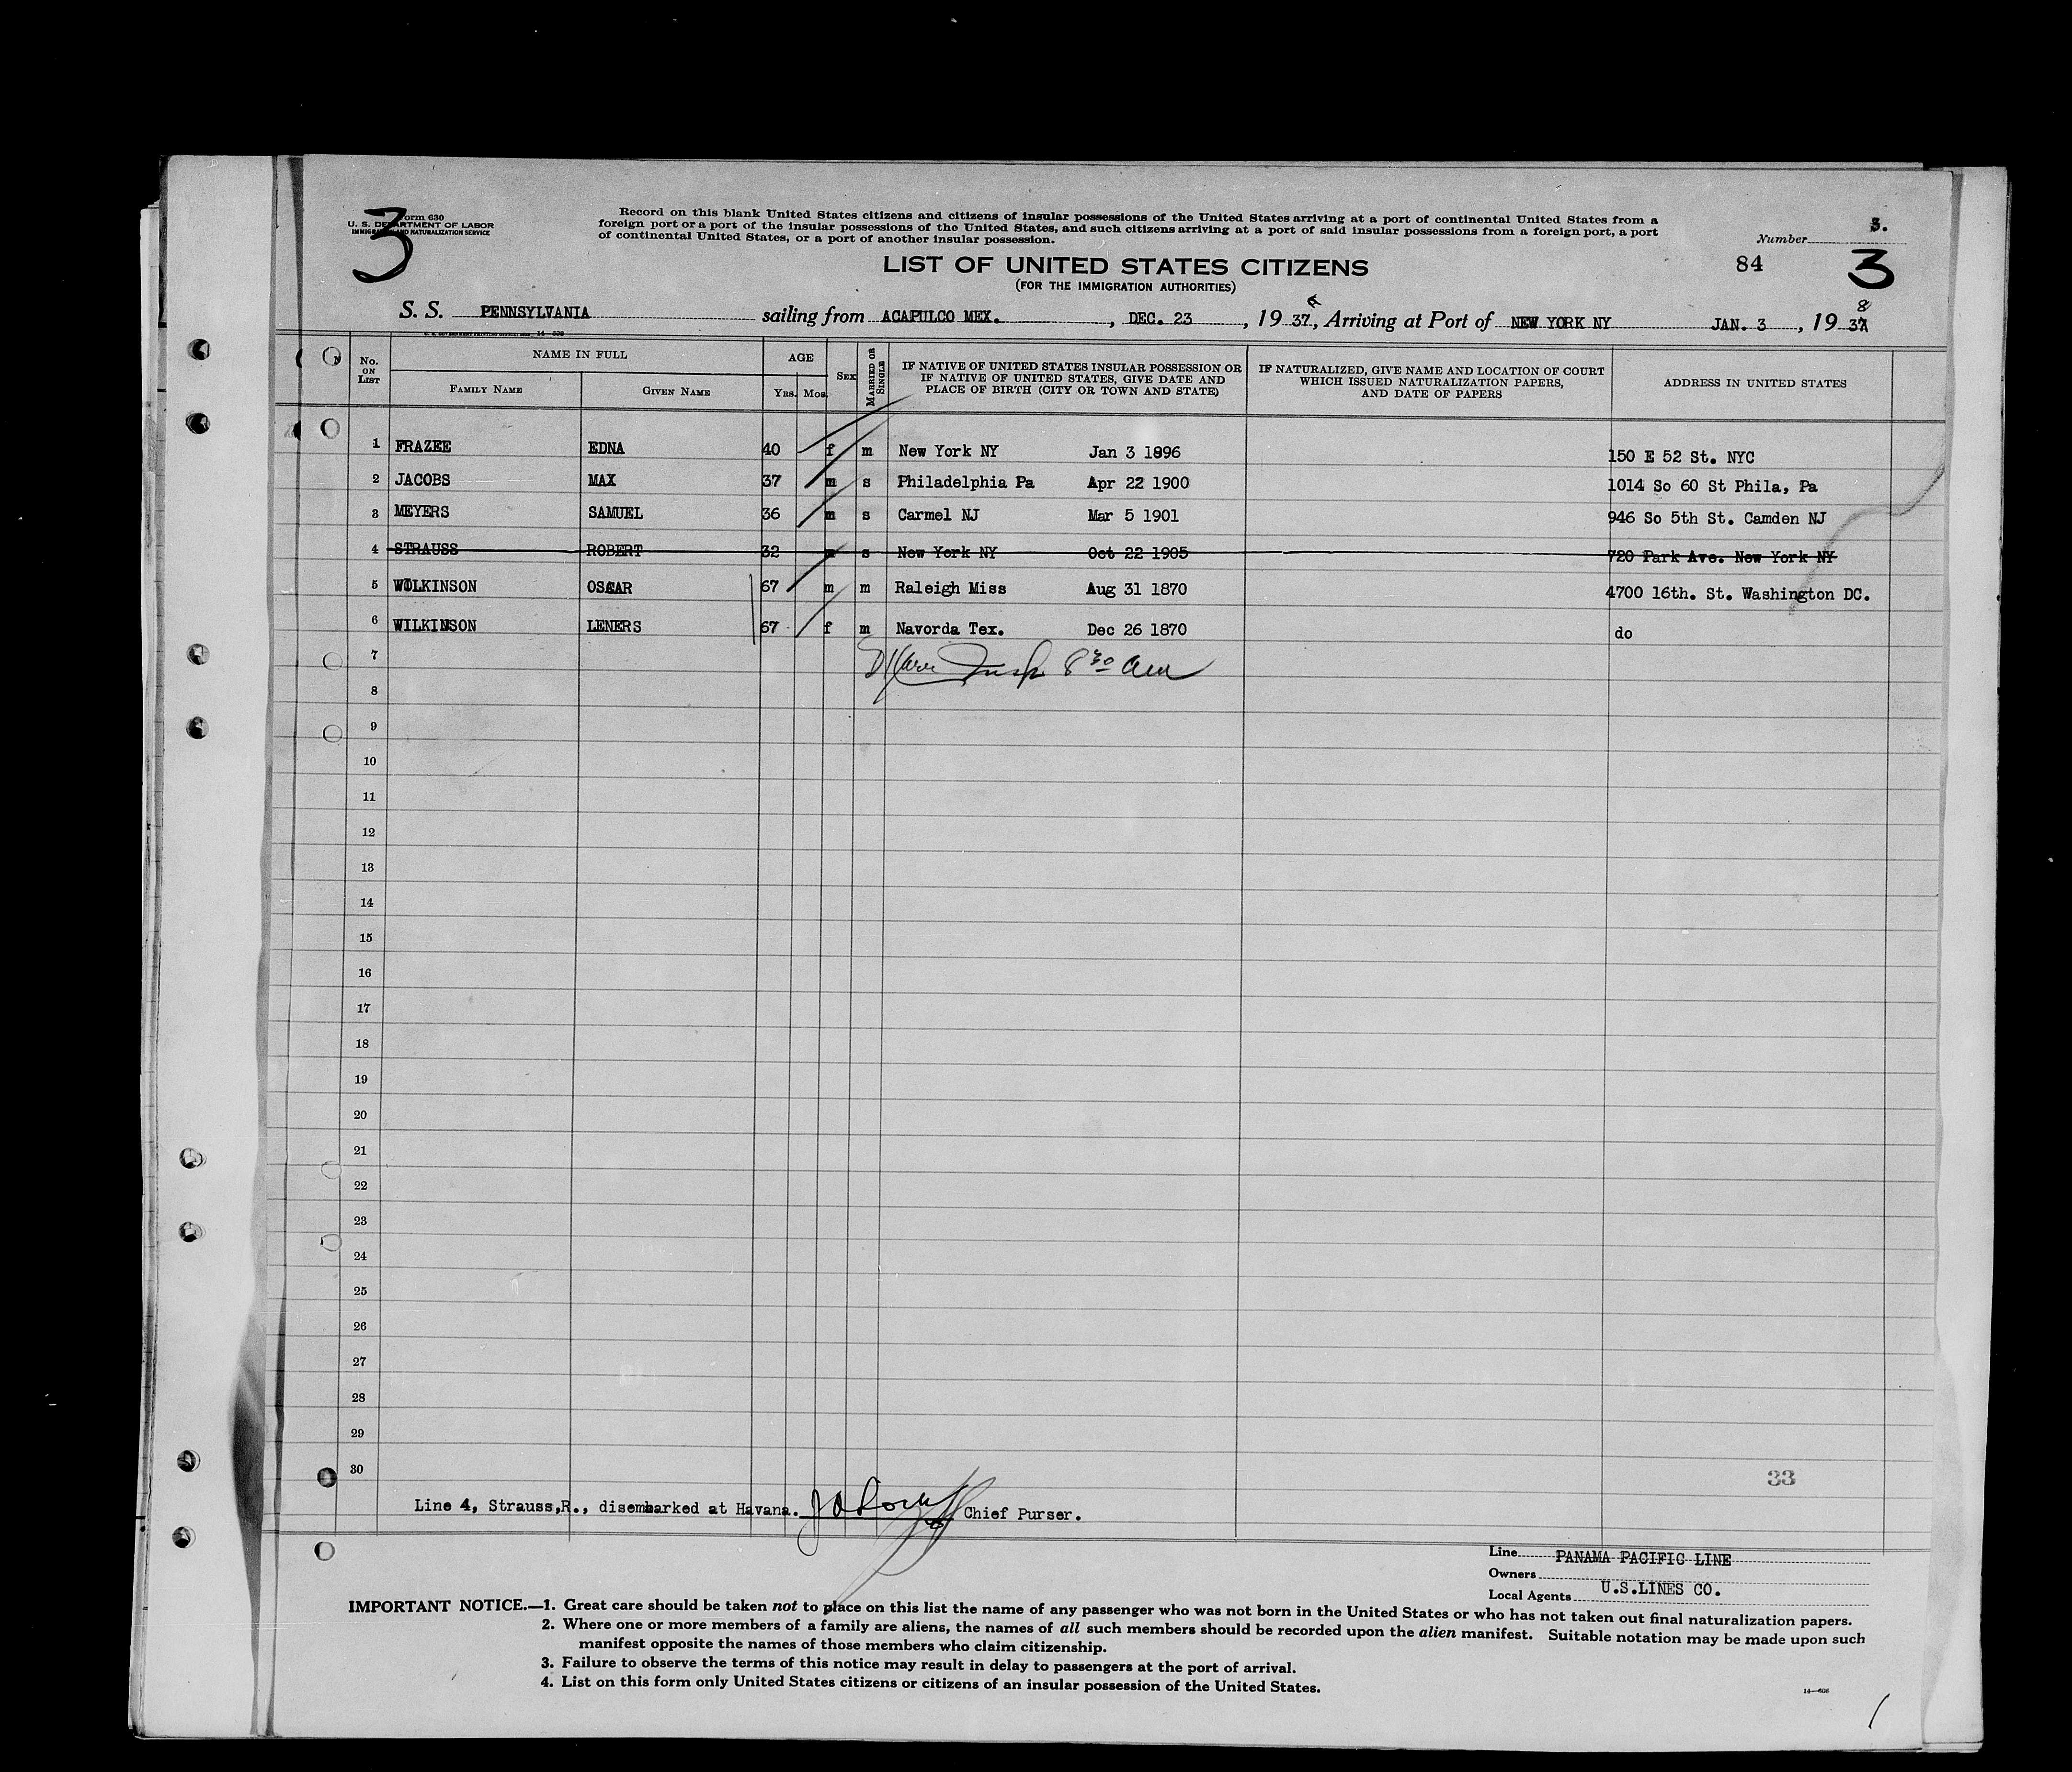 3
Form 630
U. S. DEPARTMENT OF LABOR
IMMIGRATION AND NATURALIZATION SERVICE
Record on this blank United States citizens and citizens of insular possessions of the United States arriving at a port of continental United States from a
foreign port or a port of the insular possessions of the United States, and such citizens arriving at a port of said insular possessions from a foreign port, a port
of continental United States, or a port of another insular possession.
Number 3.
LIST OF UNITED STATES CITIZENS
84 3
(FOR THE IMMIGRATION AUTHORITIES)
S. S. PENNSYLVANIA sailing from ACAPULCO MEX. , DEC. 23 , 19 37, Arriving at Port of NEW YORK NY JAN. 3 , 19 38
No. ON LIST NAME IN FULL AGE SEX MARRIED OR SINGLE IF NATIVE OF UNITED STATES INSULAR POSSESSION OR IF NATIVE OF UNITED STATES, GIVE DATE AND PLACE OF BIRTH (CITY OR TOWN AND STATE) IF NATURALIZED, GIVE NAME AND LOCATION OF COURT WHICH ISSUED NATURALIZATION PAPERS, AND DATE OF PAPERS ADDRESS IN UNITED STATES
FAMILY NAME GIVEN NAME YRS. MOS.
1 FRAZEE EDNA 40 f m New York NY Jan 3 1896 150 E 52 St. NYC
2 JACOBS MAX 37 m s Philadelphia Pa Apr 22 1900 1014 So 60 St Phila, Pa
3 MEYERS SAMUEL 36 m s Carmel NJ Mar 5 1901 946 So 5th St. Camden NJ
4 STRAUSS ROBERT 32 m s New York NY Oct 22 1905 720 Park Ave. New York NY
5 WILKINSON OSCAR 67 m m Raleigh Miss Aug 31 1870 4700 16th. St. Washington DC.
6 WILKINSON LENERS 67 f m Navorda Tex. Dec 26 1870 do
7 Insp 8 30 am
8
9
10
11
12
13
14
15
16
17
18
19
20
21
22
23
24
25
26
27
28
29
30
33
Line 4, Strauss,R., disembarked at Havana. Chief Purser.
Line PANAMA PACIFIC LINE
Owners
Local Agents U.S.LINES CO.
IMPORTANT NOTICE.—1. Great care should be taken not to place on this list the name of any passenger who was not born in the United States or who has not taken out final naturalization papers.
2. Where one or more members of a family are aliens, the names of all such members should be recorded upon the alien manifest. Suitable notation may be made upon such
manifest opposite the names of those members who claim citizenship.
3. Failure to observe the terms of this notice may result in delay to passengers at the port of arrival.
4. List on this form only United States citizens or citizens of an insular possession of the United States.